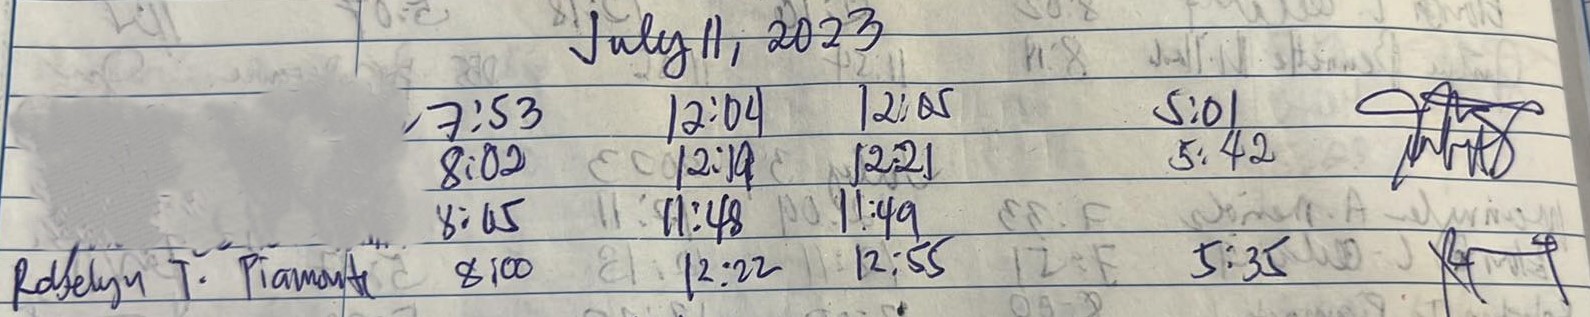 July 11, 2023
7:53 12:04 12:05 5:01
8:02 12:19 12:21 5:42
8:05 11:48 11:49
T. Piamonte 8:00 12:22 12:55 5:35